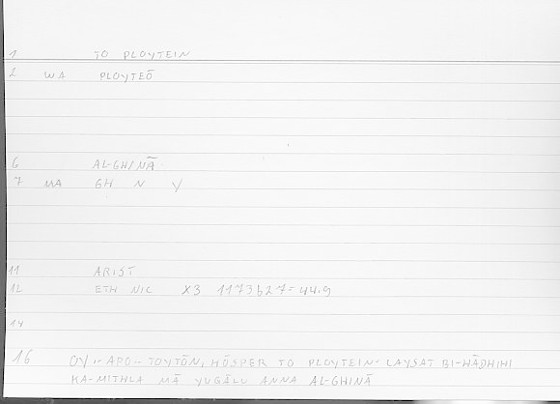 1 TO PLOYTEIN
2 WA PLOYTEŌ
6 AL-GHINĀ
7 MA GH N Y
11 ARIST
12 ETH NIC X3 1173b27=44.9
14
16 OY .. APO - TOYTŌN, HŌSPER TO PLOYTEIN- LAYSAT BI-HĀDHIHI
KA-MITHLA MĀ YUQĀLU ANNA AL-GHINĀ